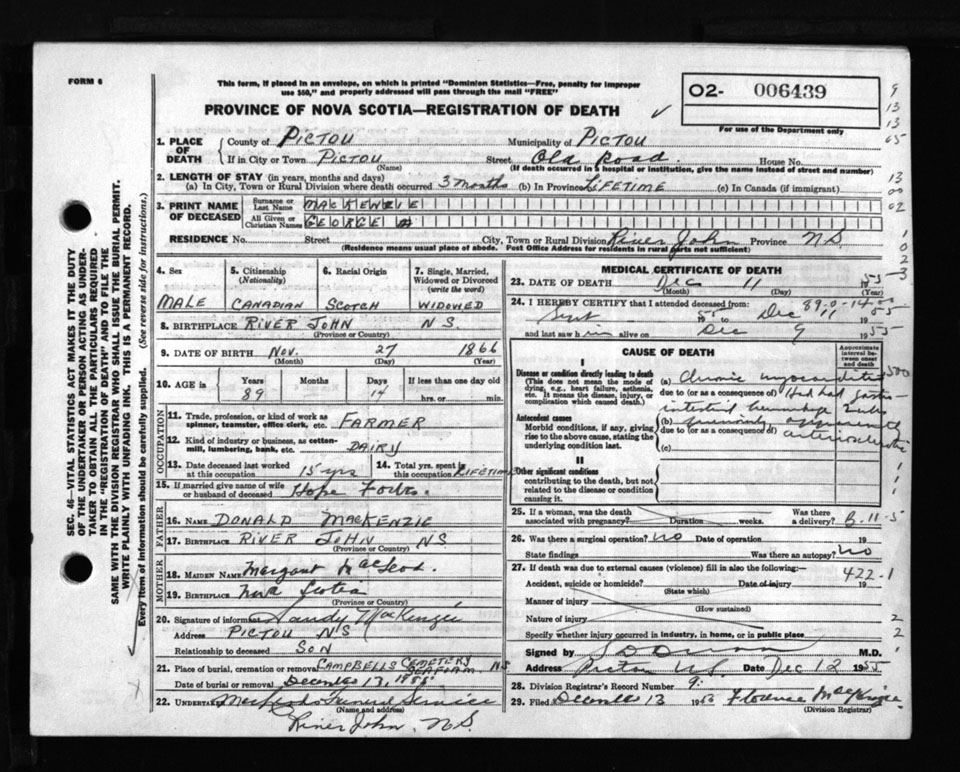 FORM 6
This form, if placed in an envelope, on which is printed "Dominion Statistics—Free, penalty for improper
use $50," and properly addressed will pass through the mail "FREE"
PROVINCE OF NOVA SCOTIA—REGISTRATION OF DEATH
O2- 006439
For use of the Department only
SEC. 46—VITAL STATISTICS ACT MAKES IT THE DUTY
OF THE UNDERTAKER OR PERSON ACTING AS UNDER-
TAKER TO OBTAIN ALL THE PARTICULARS REQUIRED
IN THE "REGISTRATION OF DEATH" AND TO FILE THE
SAME WITH THE DIVISION REGISTRAR WHO SHALL ISSUE THE BURIAL PERMIT.
WRITE PLAINLY WITH UNFADING INK. THIS IS A PERMANENT RECORD.
Every item of information should be carefully supplied. (See reverse side for instructions.)
1. PLACE OF DEATH
County of PICTOU Municipality of PICTOU
If in City or Town PICTOU Street Old Road. House No.
(Name) (If death occurred in a hospital or institution, give the name instead of street and number)
2. LENGTH OF STAY (in years, months and days)
(a) In City, Town or Rural Division where death occurred 3 months (b) In Province LIFETIME (c) In Canada (if immigrant)
3. PRINT NAME OF DECEASED
Surname or Last Name MACKENZIE
All Given or Christian Names GEORGE
RESIDENCE No. Street City, Town or Rural Division River John Province N.S.
(Residence means usual place of abode. Post Office Address for residents in rural parts not sufficient)
4. Sex MALE
5. Citizenship (Nationality) CANADIAN
6. Racial Origin SCOTCH
7. Single, Married, Widowed or Divorced (write the word) WIDOWED
8. BIRTHPLACE RIVER JOHN N S.
(Province or Country)
9. DATE OF BIRTH Nov. 27 1866
(Month) (Day) (Year)
10. AGE in Years 89 Months Days 14 If less than one day old hrs. or min.
OCCUPATION
11. Trade, profession, or kind of work as spinner, teamster, office clerk, etc. FARMER
12. Kind of industry or business, as cotton-mill, lumbering, bank, etc. DAIRY
13. Date deceased last worked at this occupation 15 yrs
14. Total yrs. spent in this occupation LIFETIME
15. If married give name of wife or husband of deceased Hope
FATHER
16. NAME DONALD MACKENZIE
17. BIRTHPLACE RIVER JOHN NS
(Province or Country)
MOTHER
18. MAIDEN NAME Margaret MacLeod.
19. BIRTHPLACE Nova Scotia
(Province or Country)
20. Signature of informant Sandy MacKenzie
Address PICTOU NS
Relationship to deceased SON
21. Place of burial, cremation or removal CAMPBELLS CEMETERY NS
Date of burial or removal December 13, 1955
22. Undertaker Funeral Service
River John, N.S.
MEDICAL CERTIFICATE OF DEATH
23. DATE OF DEATH Dec 11 1955
(Month) (Day) (Year)
24. I HEREBY CERTIFY that I attended deceased from:
Sept 1955 to Dec 11 1955
and last saw him alive on Dec 9 1955
89-0-14
CAUSE OF DEATH
Approximate interval between onset and death
I
Disease or condition directly leading to death
(This does not mean the mode of dying, e.g., heart failure, asthenia, etc. It means the disease, injury, or complication which caused death.)
(a) Chronic myocarditis
due to (or as a consequence of) Had had gastro-
intestinal hemorrhage
Antecedent causes
Morbid conditions, if any, giving rise to the above cause, stating the underlying condition last.
(b) previously apparently
due to (or as a consequence of) arteriosclerotic
(c)
II
Other significant conditions
contributing to the death, but not related to the disease or condition causing it.
25. If a woman, was the death associated with pregnancy? Duration weeks. Was there a delivery?
26. Was there a surgical operation? no Date of operation 19
State findings Was there an autopsy? no
27. If death was due to external causes (violence) fill in also the following:—
422-1
Accident, suicide or homicide? Date of injury 19
(State which)
Manner of injury
(How sustained)
Nature of injury
Specify whether injury occurred in industry, in home, or in public place
Signed by M.D.
Address Pictou N.S. Date Dec 12 1955
28. Division Registrar's Record Number 9.
29. Filed December 13 1955 Florence MacKenzie
(Division Registrar)